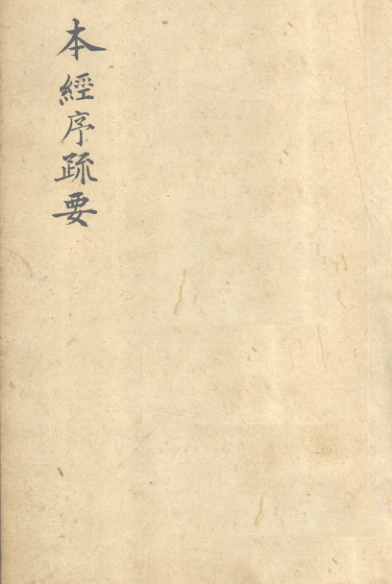 本經序疏要